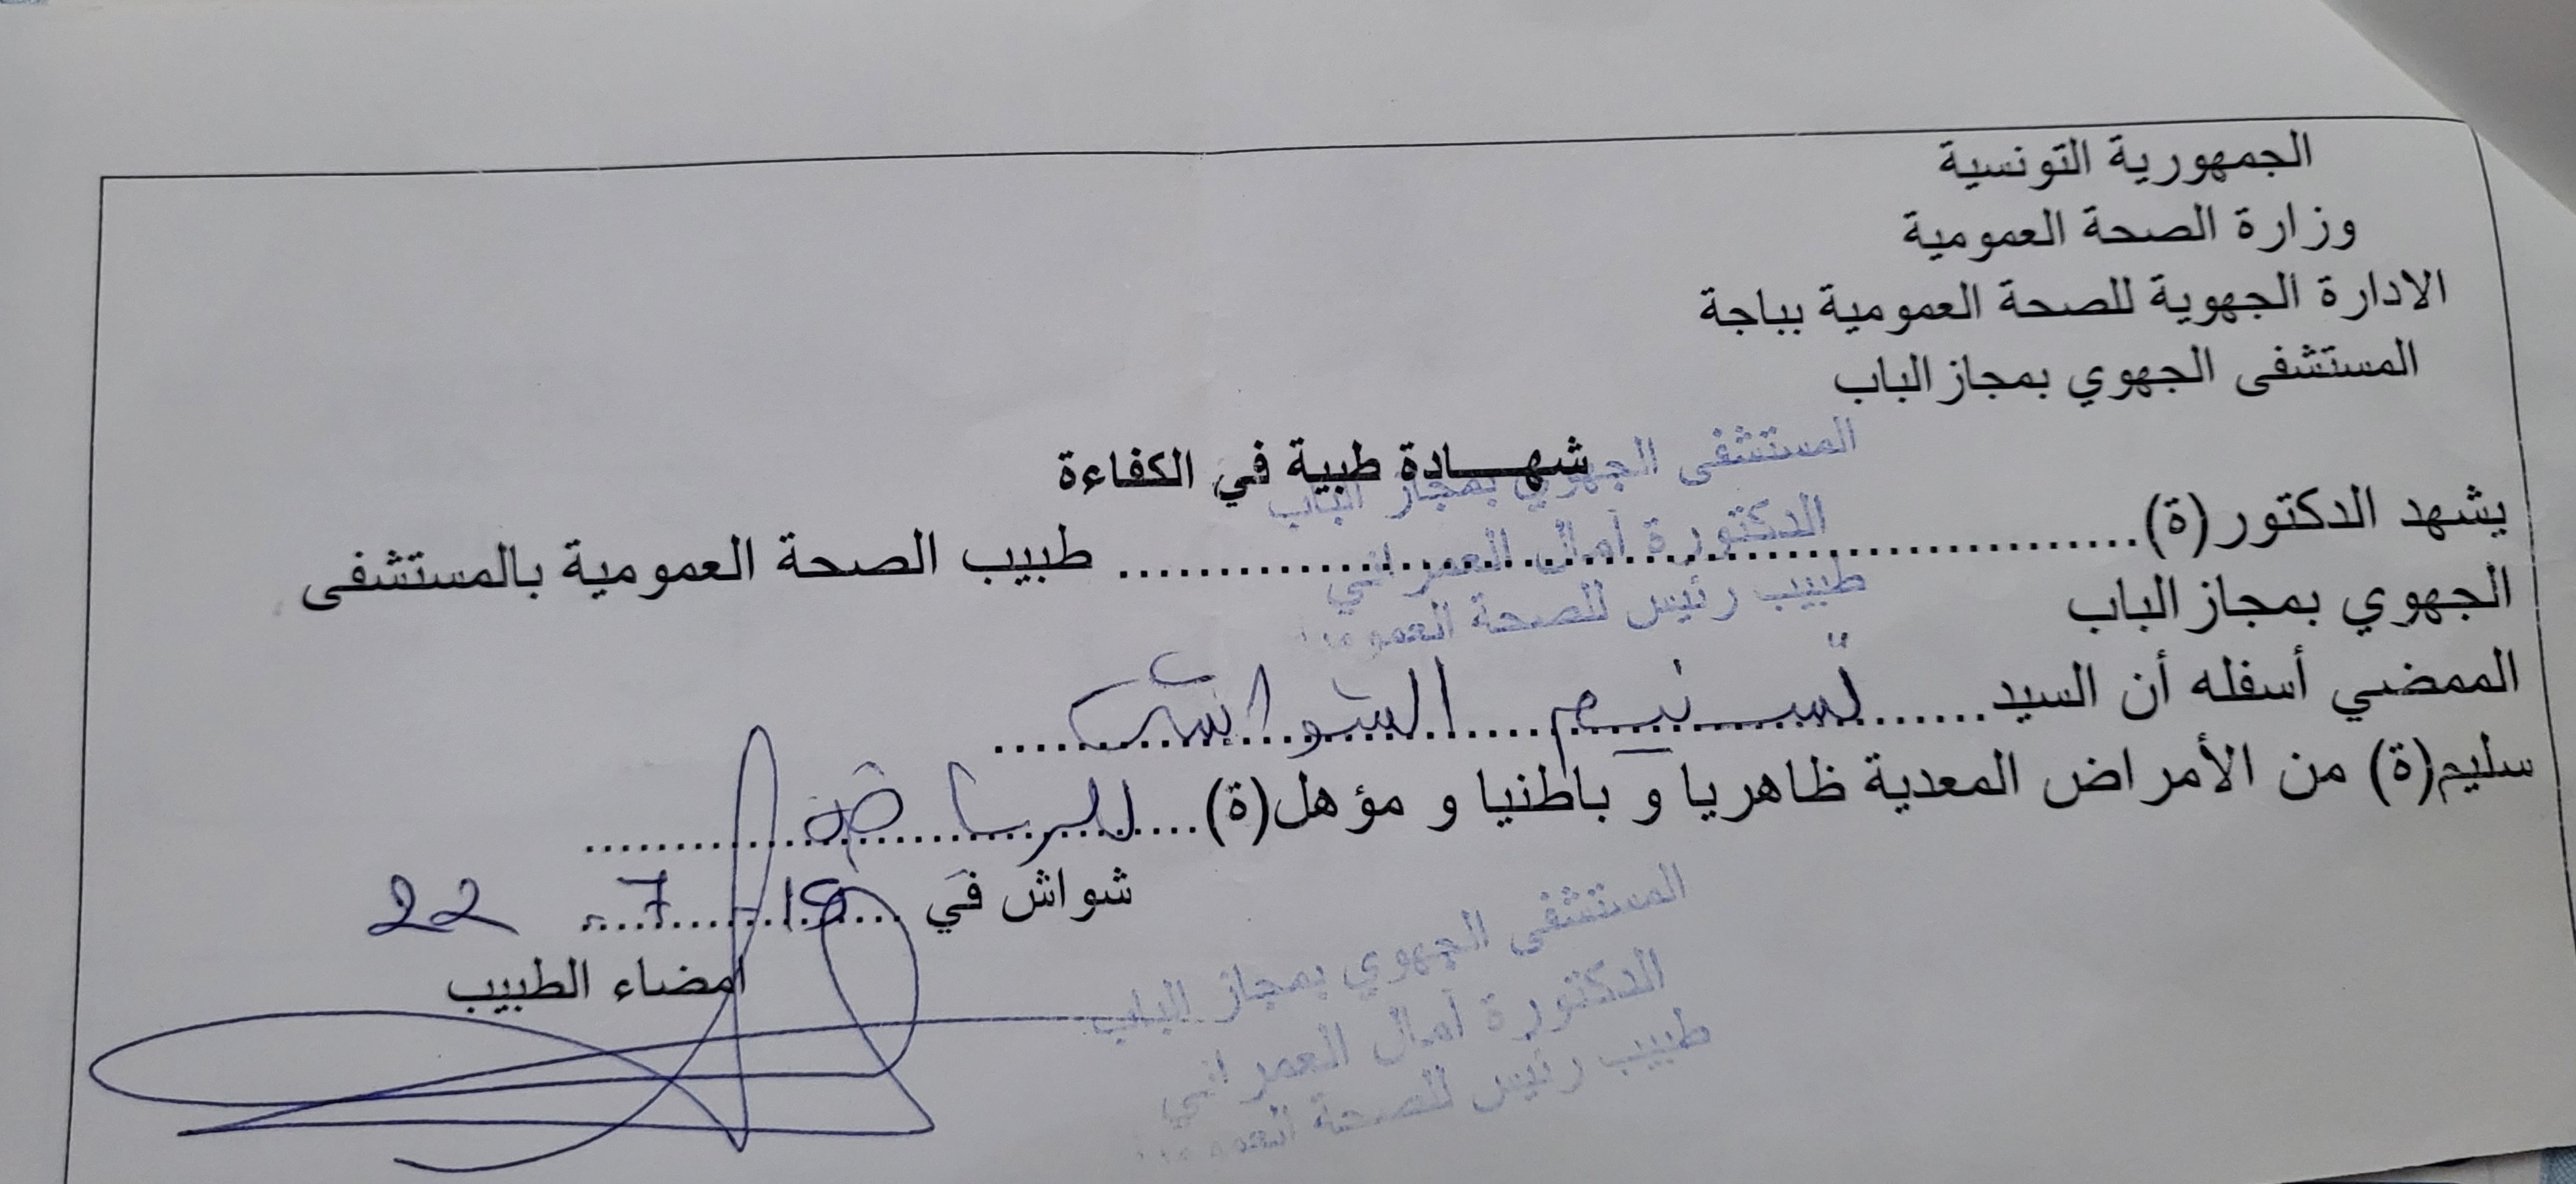 الجمهورية التونسية
وزارة الصحة العمومية
الادارة الجهوية للصحة العمومية بباجة
المستشفى الجهوي بمجاز الباب
شهـــادة طبية في الكفاءة
المستشفى الجهوي بمجاز الباب
الدكتورة أمال العمراني
طبيب رئيس للصحة
يشهد الدكتور(ة)........................................ طبيب الصحة العمومية بالمستشفى
الجهوي بمجاز الباب
الممضي أسفله أن السيد...........
سليم(ة) من الأمراض المعدية ظاهريا و باطنيا و مؤهل(ة)....للرياضة....
شواش في ........ 7 22
امضاء الطبيب
المستشفى الجهوي بمجاز الباب
الدكتورة أمال العمراني
طبيب رئيس للصحة